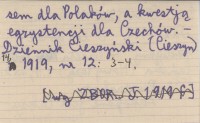 sem dla Polaków, a kwestją
egzystencji dla Czechów. –
Dziennik Cieszyński (Cieszyn)
1919, nr 12: 3-4.